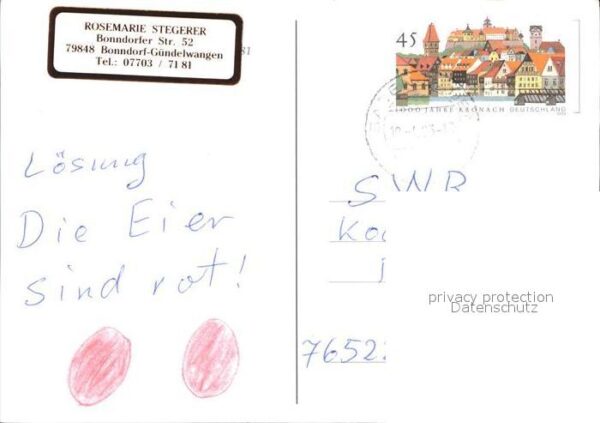 ROSEMARIE STEGERER
Bonndorfer Str. 52
79848 Bonndorf-Gündelwangen
Tel.: 07703 / 71 81
45
1000 JAHRE KRONACH DEUTSCHLAND
Lösung
Die Eier
sind rot!
SWR
7652
privacy protection
Datenschutz